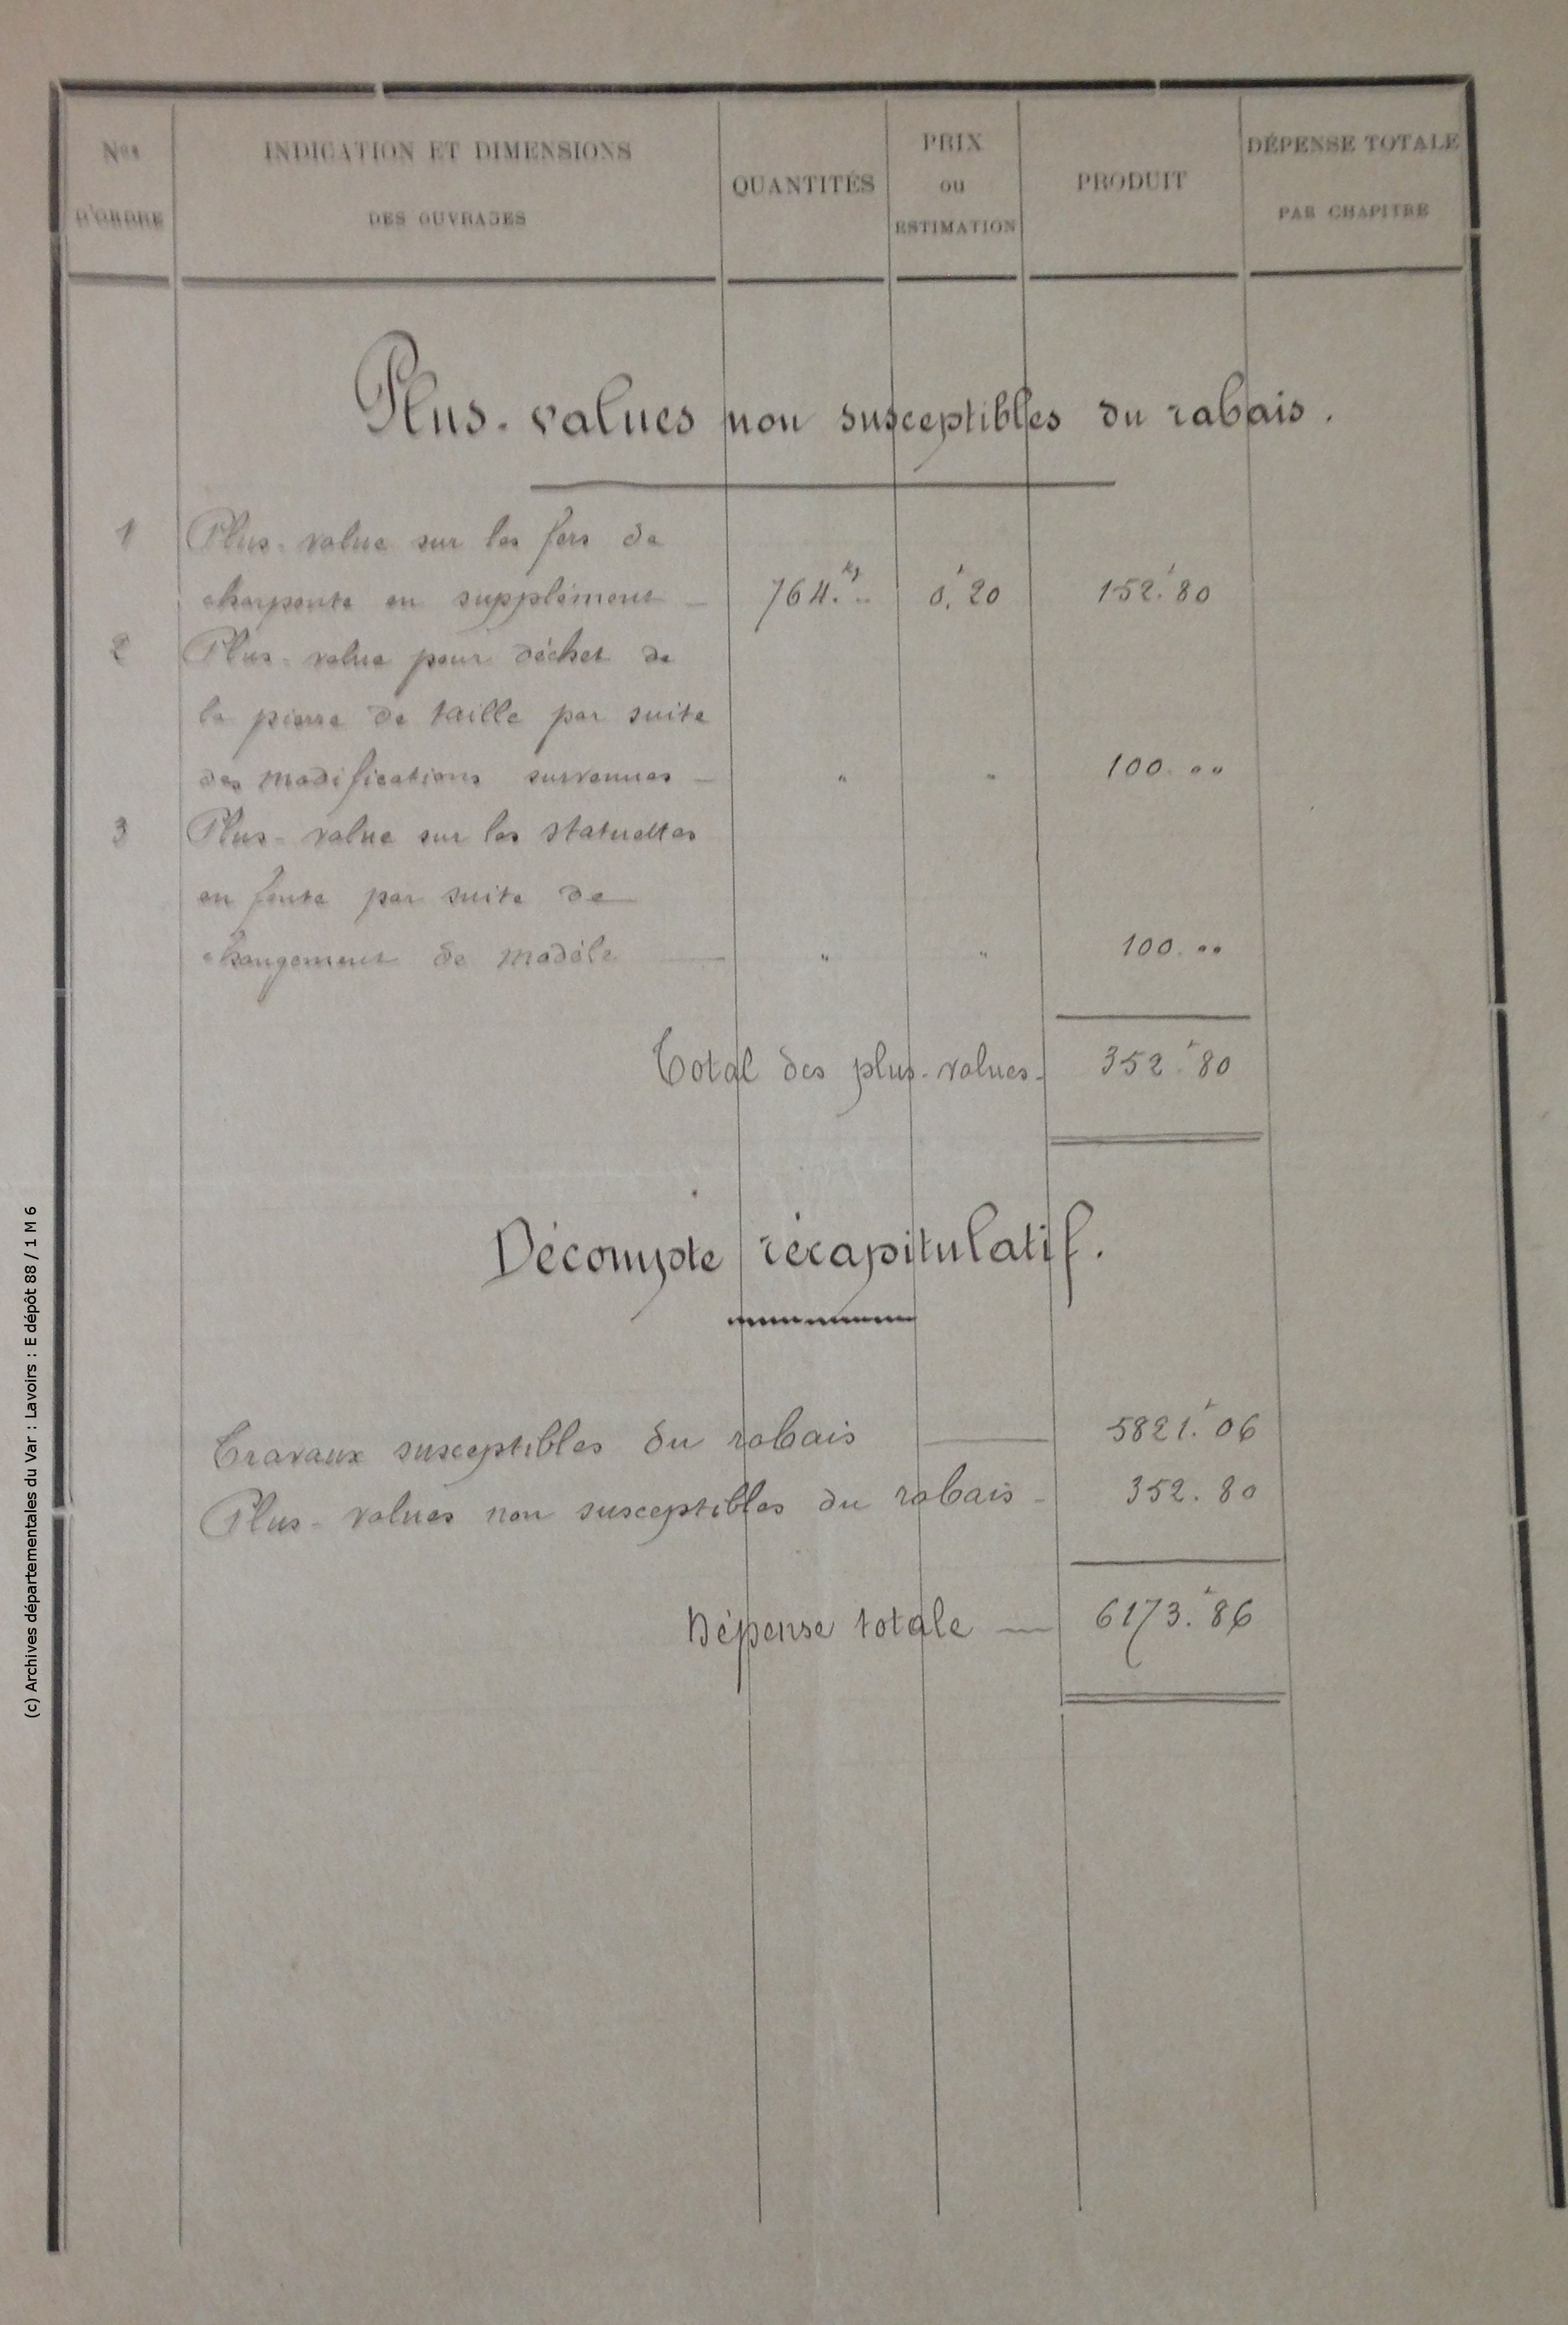 Nos
D'ORDRE
INDICATION ET DIMENSIONS
DES OUVRAGES
QUANTITÉS
PRIX
ou
ESTIMATION
PRODUIT
DÉPENSE TOTALE
PAR CHAPITRE
Plus-values non susceptibles du rabais.
1 Plus-value sur les fers de
charpente en supplément — 764.kg " 0f,20 152f.80
2 Plus-value pour déchet de
la pierre de taille par suite
des modifications survenues — " " 100. ""
3 Plus-value sur les statuettes
en fonte par suite de
changement de modèle — " " 100. ""
Total des plus-values - 352f.80
Décompte récapitulatif.
Travaux susceptibles du rabais — 5821f.06
Plus-values non susceptibles du rabais - 352.80
Dépense totale — 6173f.86
(c) Archives départementales du Var : Lavoirs : E dépôt 88 / 1 M 6